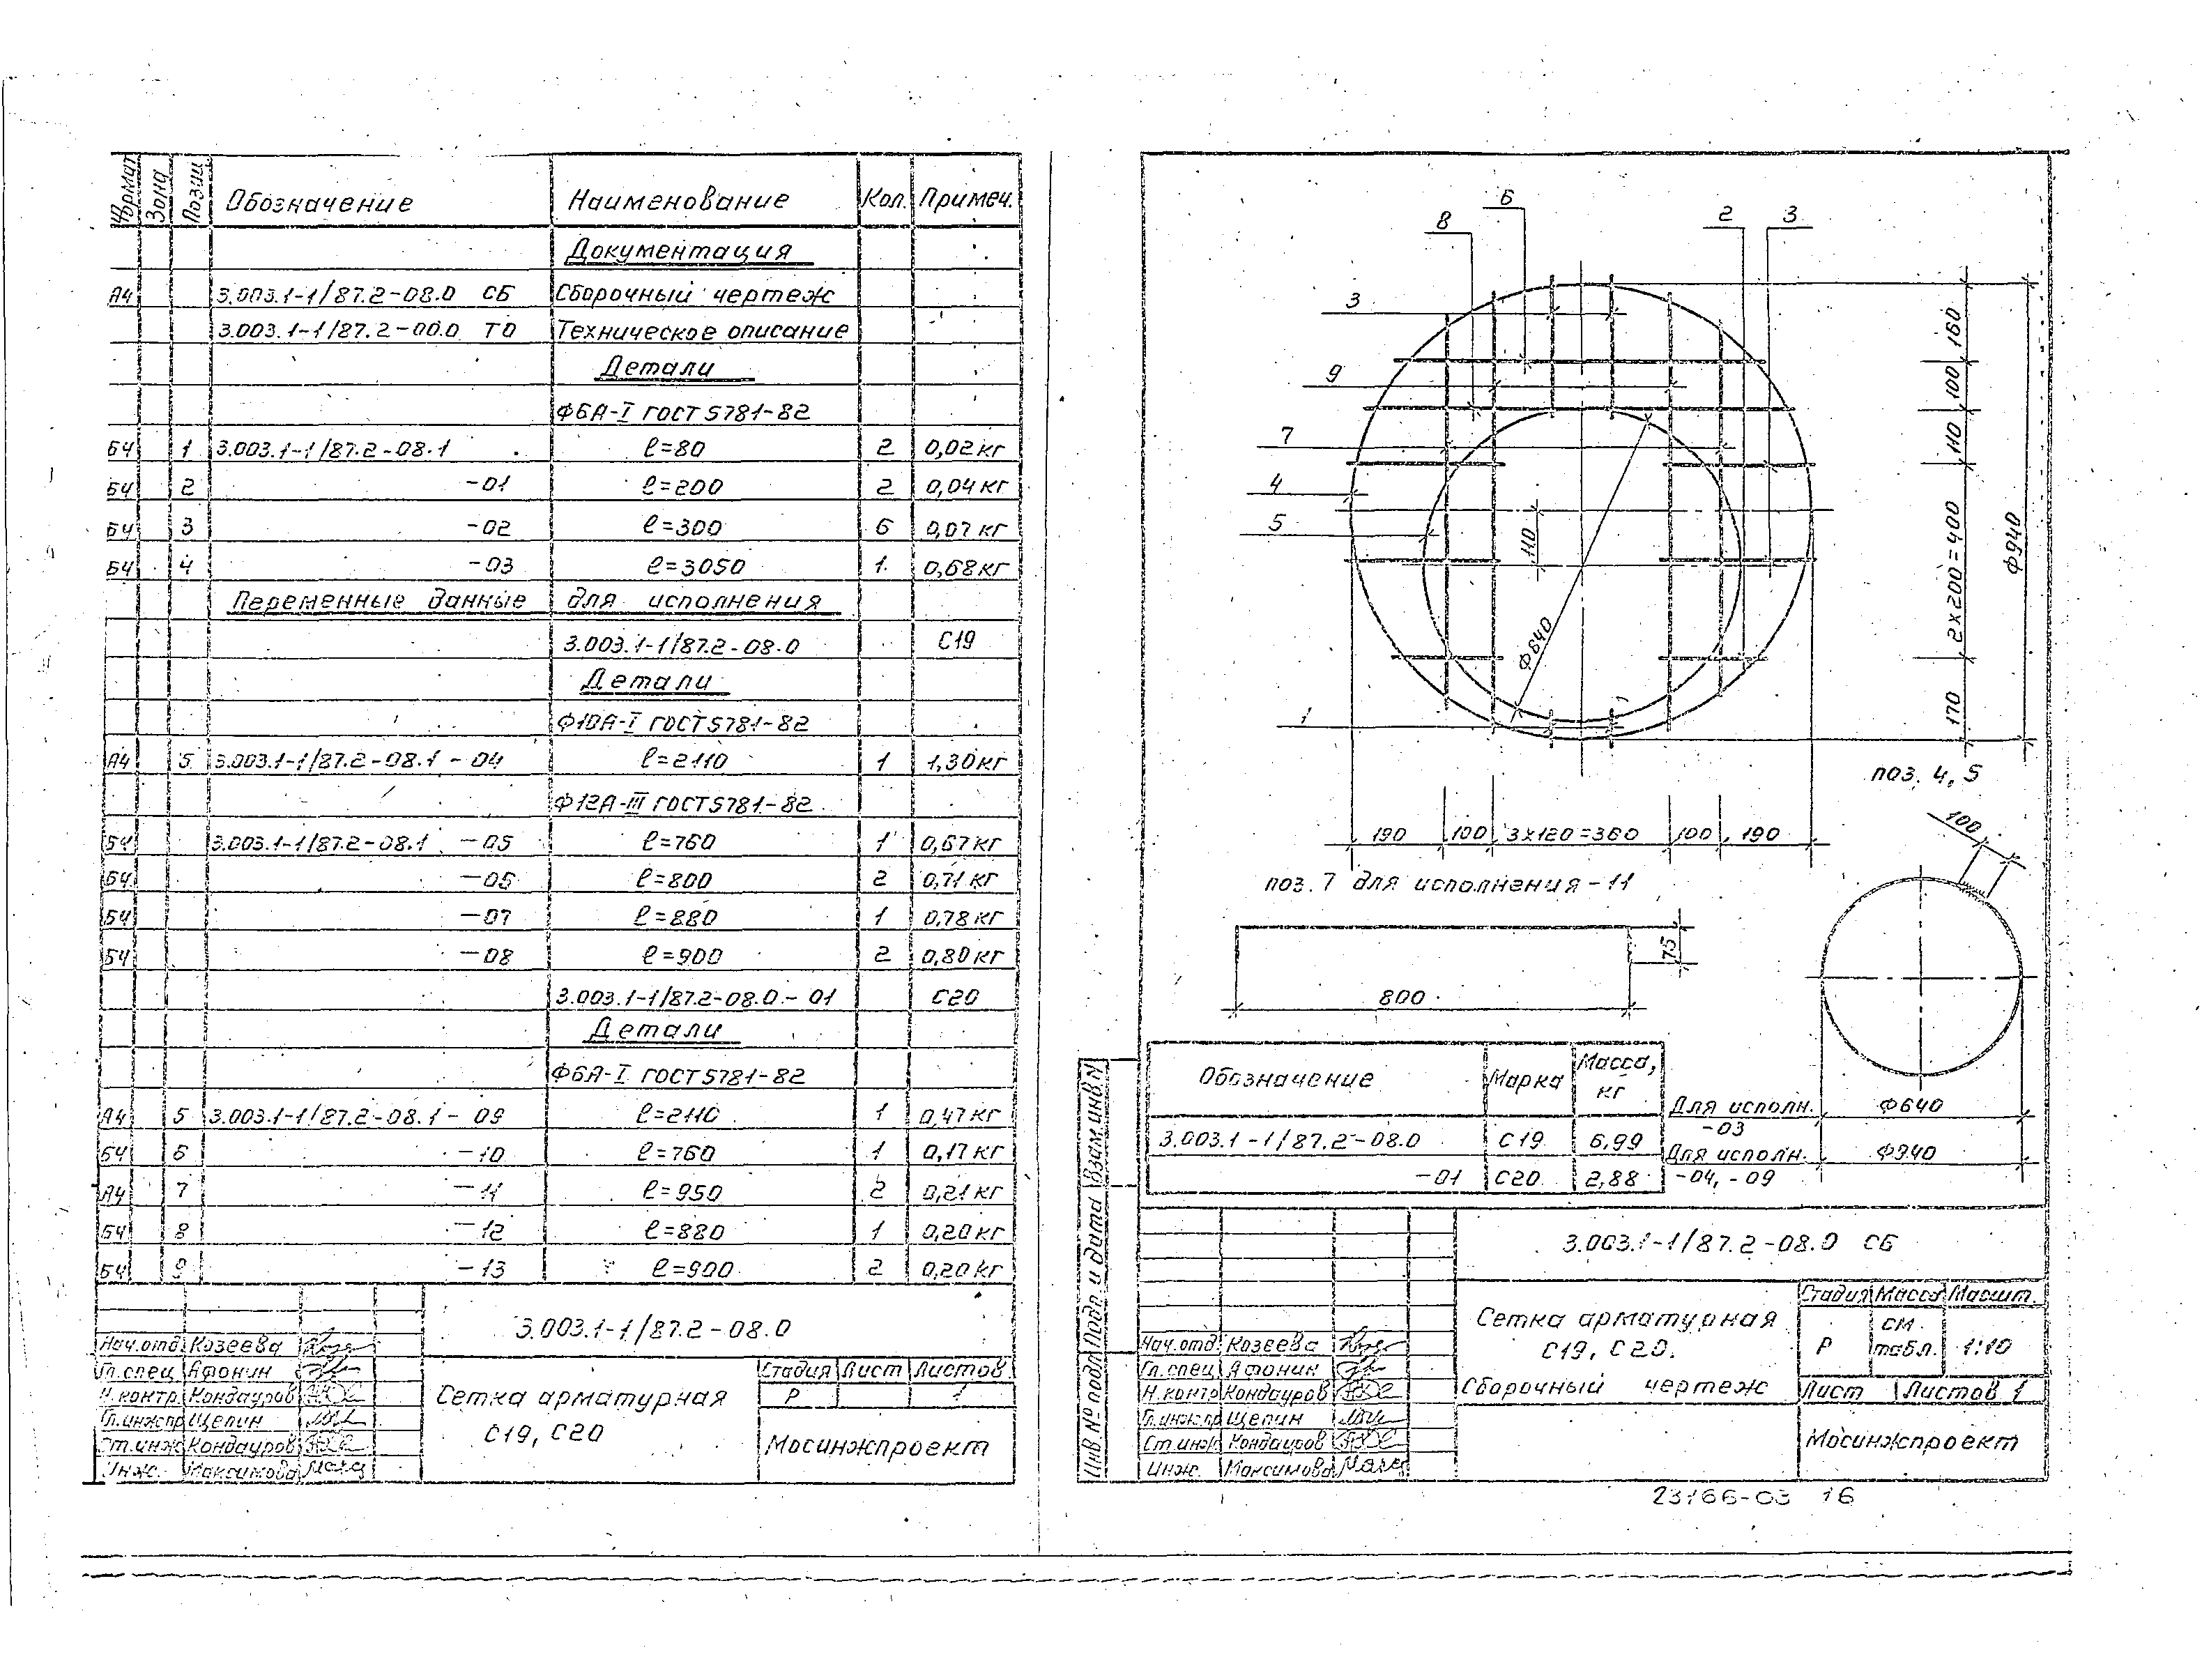 Формат Зона Позиц. Обозначение Наименование Кол. Примеч.
Документация
А4 3.003.1-1/87.2-08.0 СБ Сборочный чертеж
3.003.1-1/87.2-00.0 ТО Техническое описание
Детали
Ф6А-I ГОСТ 5781-82
БЧ 1 3.003.1-1/87.2-08.1 ℓ=80 2 0,02 кг
БЧ 2 -01 ℓ=200 2 0,04 кг
БЧ 3 -02 ℓ=300 6 0,07 кг
БЧ 4 -03 ℓ=3050 1 0,68 кг
Переменные данные для исполнения
3.003.1-1/87.2-08.0 С19
Детали
Ф10А-I ГОСТ 5781-82
А4 5 3.003.1-1/87.2-08.1-04 ℓ=2110 1 1,30 кг
Ф12А-III ГОСТ 5781-82
БЧ 3.003.1-1/87.2-08.1 -05 ℓ=760 1 0,67 кг
БЧ -05 ℓ=800 2 0,71 кг
БЧ -07 ℓ=880 1 0,78 кг
БЧ -08 ℓ=900 2 0,80 кг
3.003.1-1/87.2-08.0-01 С20
Детали
Ф6А-I ГОСТ 5781-82
А4 5 3.003.1-1/87.2-08.1-09 ℓ=2110 1 0,47 кг
БЧ 6 -10 ℓ=760 1 0,17 кг
А4 7 -11 ℓ=950 2 0,21 кг
БЧ 8 -12 ℓ=880 1 0,20 кг
БЧ 9 -13 ℓ=900 2 0,20 кг
3.003.1-1/87.2-08.0
Нач.отд. Козеева
Гл.спец. Афонин
Н.контр. Кондауров
Гл.инж.пр Щепин
Ст.инж. Кондауров
Инж. Максимова
Сетка арматурная
С19, С20
Стадия Лист Листов
Р 1
Мосинжпроект
6
8 2 3
3
9
7
4
5
1
110
Ф640
160
100
110
2х200=400
170
Ф940
190 100 3х120=360 100 190
поз. 4, 5
100
поз. 7 для исполнения-11
75
800
Обозначение Марка Масса, кг
3.003.1-1/87.2-08.0 С19 6,99
-01 С20 2,88
Для исполн. Ф640
-03
Для исполн. Ф940
-04, -09
Инв.№ подл. Подп. и дата Взам.инв.№
3.003.1-1/87.2-08.0 СБ
Нач.отд. Козеева
Гл.спец. Афонин
Н.контр. Кондауров
Гл.инж.пр Щепин
Ст.инж. Кондауров
Инж. Максимова
Сетка арматурная
С19, С20.
Сборочный чертеж
Стадия Масса Масшт.
Р см. табл. 1:10
Лист Листов 1
Мосинжпроект
23166-03 16